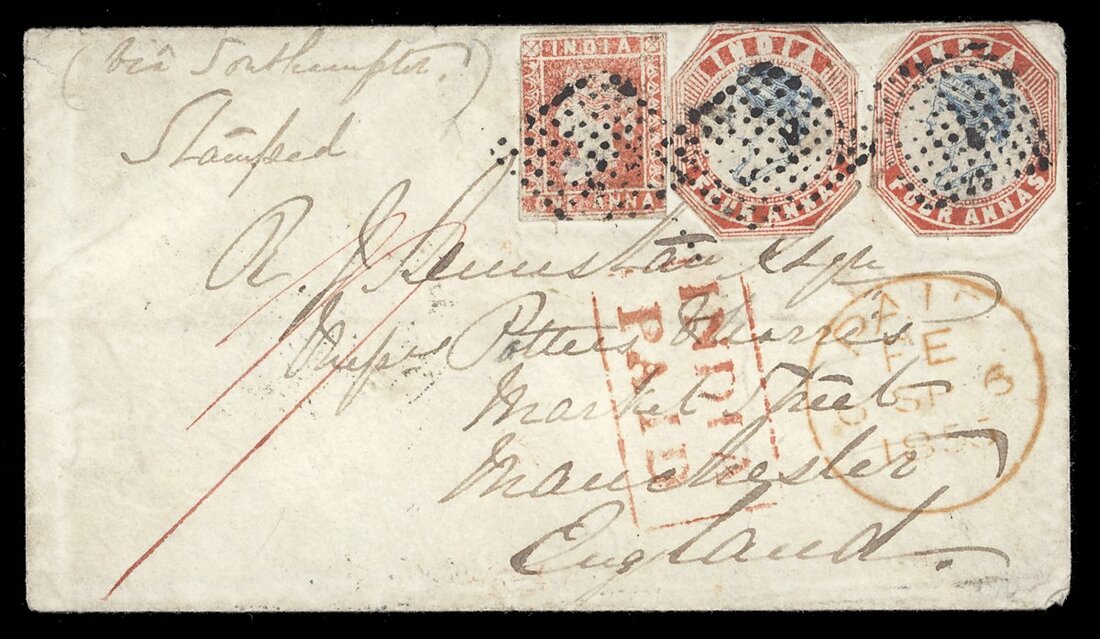 (via Southampton)
Stamped
INDIA
ONE ANNA
INDIA
FOUR ANNAS
INDIA
FOUR ANNAS
R. J. Esqr
Potters
Market Street
Manchester
England
INDIA
PAID
PAID
FE
SP 3
185